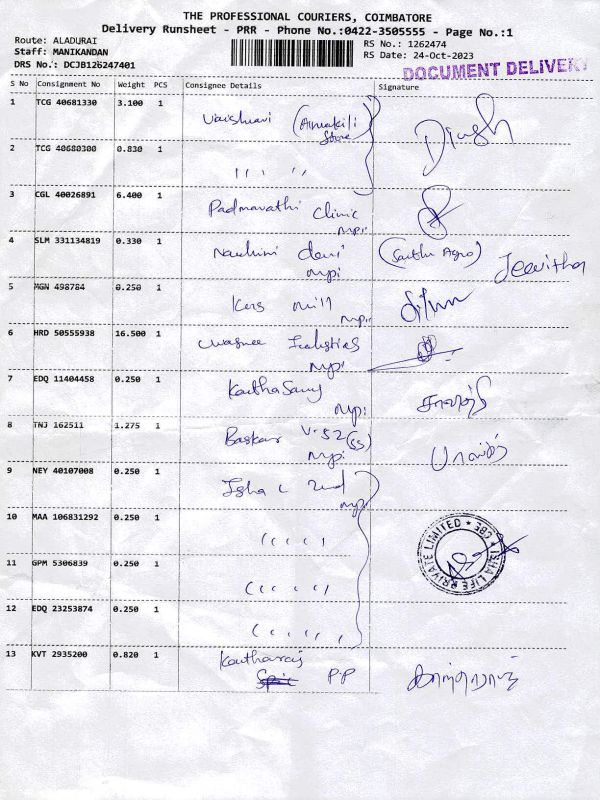 THE PROFESSIONAL COURIERS, COIMBATORE
Delivery Runsheet - PRR - Phone No.:0422-3505555 - Page No.:1
Route: ALADURAI
Staff: MANIKANDAN
DRS No.: DCJB126247401
RS No.: 1262474
RS Date: 24-Oct-2023
DOCUMENT DELIVERY
S No Consignment No Weight PCS Consignee Details Signature
1 TCG 40681330 3.100 1
Store
2 TCG 40680300 0.830 1 " "
3 CGL 40026891 6.400 1 Padmavathi Clinic
mpi
4 SLM 331134819 0.330 1 Nandhini devi Jeevitha
mpi
5 MGN 498784 0.250 1 mill
mpi
6 HRD 50555938 16.500 1
mpi
7 EDQ 11404458 0.250 1 KanthaSamy
mpi
8 TNJ 162511 1.275 1 Baskar V-52 (SS)
mpi
9 NEY 40107008 0.250 1 Isha L
mpi
10 MAA 106831292 0.250 1 " "
11 GPM 5306839 0.250 1 " "
12 EDQ 23253874 0.250 1 " "
ISHA LIFE PRIVATE LIMITED * CBE *
13 KVT 2935200 0.820 1
P.P